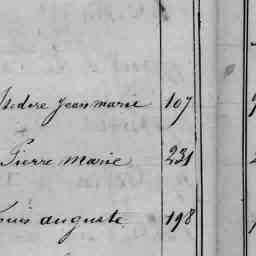 Isidore Jean marie 107
Pierre marie 231
Louis auguste 198